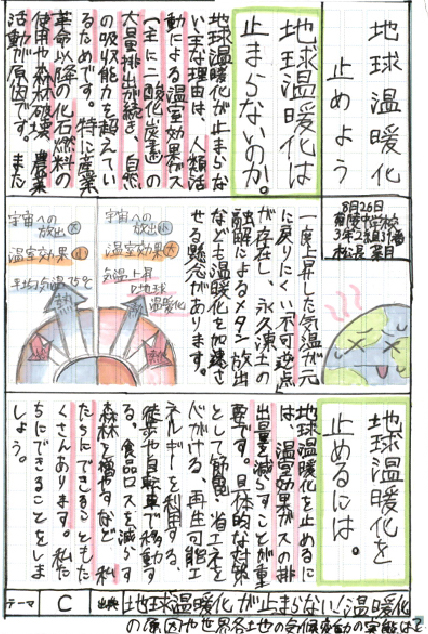 地球温暖化
止めよう
地球温暖化は
止まらないのか。
地球温暖化が止まらな
い主な理由は、人類活
動による温室効果ガス
（主に二酸化炭素）の
大量排出が続き、自然
の吸収能力を超えてい
るためです。特に産業
革命以降の化石燃料の
使用や森林破壊、農業
活動が原因です。また
8月26日
3年2組
一度上昇した気温が元
に戻りにくい「不可逆点」
が存在し、永久凍土の
融解によるメタン放出
なども温暖化を加速さ
せる懸念があります。
宇宙への
放出大
温室効果小
平均気温
熱
宇宙への
放出小
温室効果大
気温上昇
地球
温暖化
熱
地球温暖化を
止めるには。
地球温暖化を止めるに
は、温室効果ガスの排
出量を減らすことが重
要です。具体的な対策
として節電、省エネを
心がける、再生可能エ
ネルギーを利用する、
徒歩や自転車で移動す
る、食品ロスを減らす
森林を増やすなど、私
たちにできることもた
くさんあります。私た
ちにできることをしま
しょう。
テーマ
C
出典
地球温暖化が止まらない！温暖化
の原因や世界各地の気候変動の実態は？